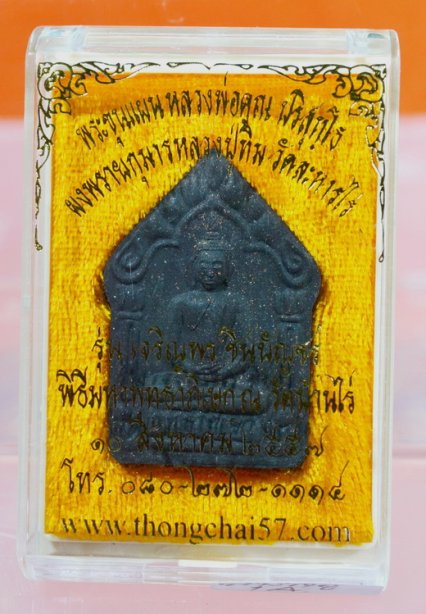 พระขุนแผน หลวงพ่อคูณ ปริสุทฺโธ
ผงพรายกุมารหลวงปู่ทิม วัดละหารไร่
รุ่น เจริญพร ชินบัญชร
พิธีมหาพุทธาภิเษก ณ วัดบ้านไร่
๑๐ สิงหาคม ๒๕๕๗
โทร. ๐๘๐-๒๗๒-๑๑๑๔
www.thongchai57.com